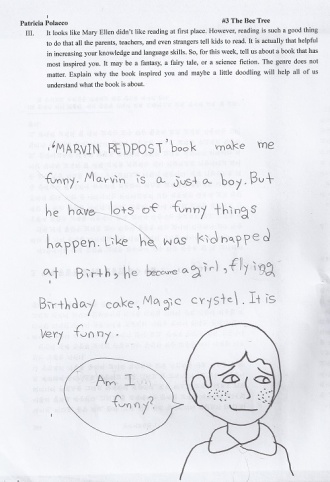 Patricia Polacco #3 The Bee Tree
III. It looks like Mary Ellen didn't like reading at first place. However, reading is such a good thing
to do that all the parents, teachers, and even strangers tell kids to read. It is actually that helpful
in increasing your knowledge and language skills. So, for this week, tell us about a book that has
most inspired you. It may be a fantasy, a fairy tale, or a science fiction. The genre does not
matter. Explain why the book inspired you and maybe a little doodling will help all of us
understand what the book is about.
"MARVIN REDPOST" book make me
funny. Marvin is a just a boy. But
he have lots of funny things
happen. Like he was kidnapped
at Birth, he became a girl, flying
Birthday cake, Magic crystel. It is
very funny.
Am I
funny?